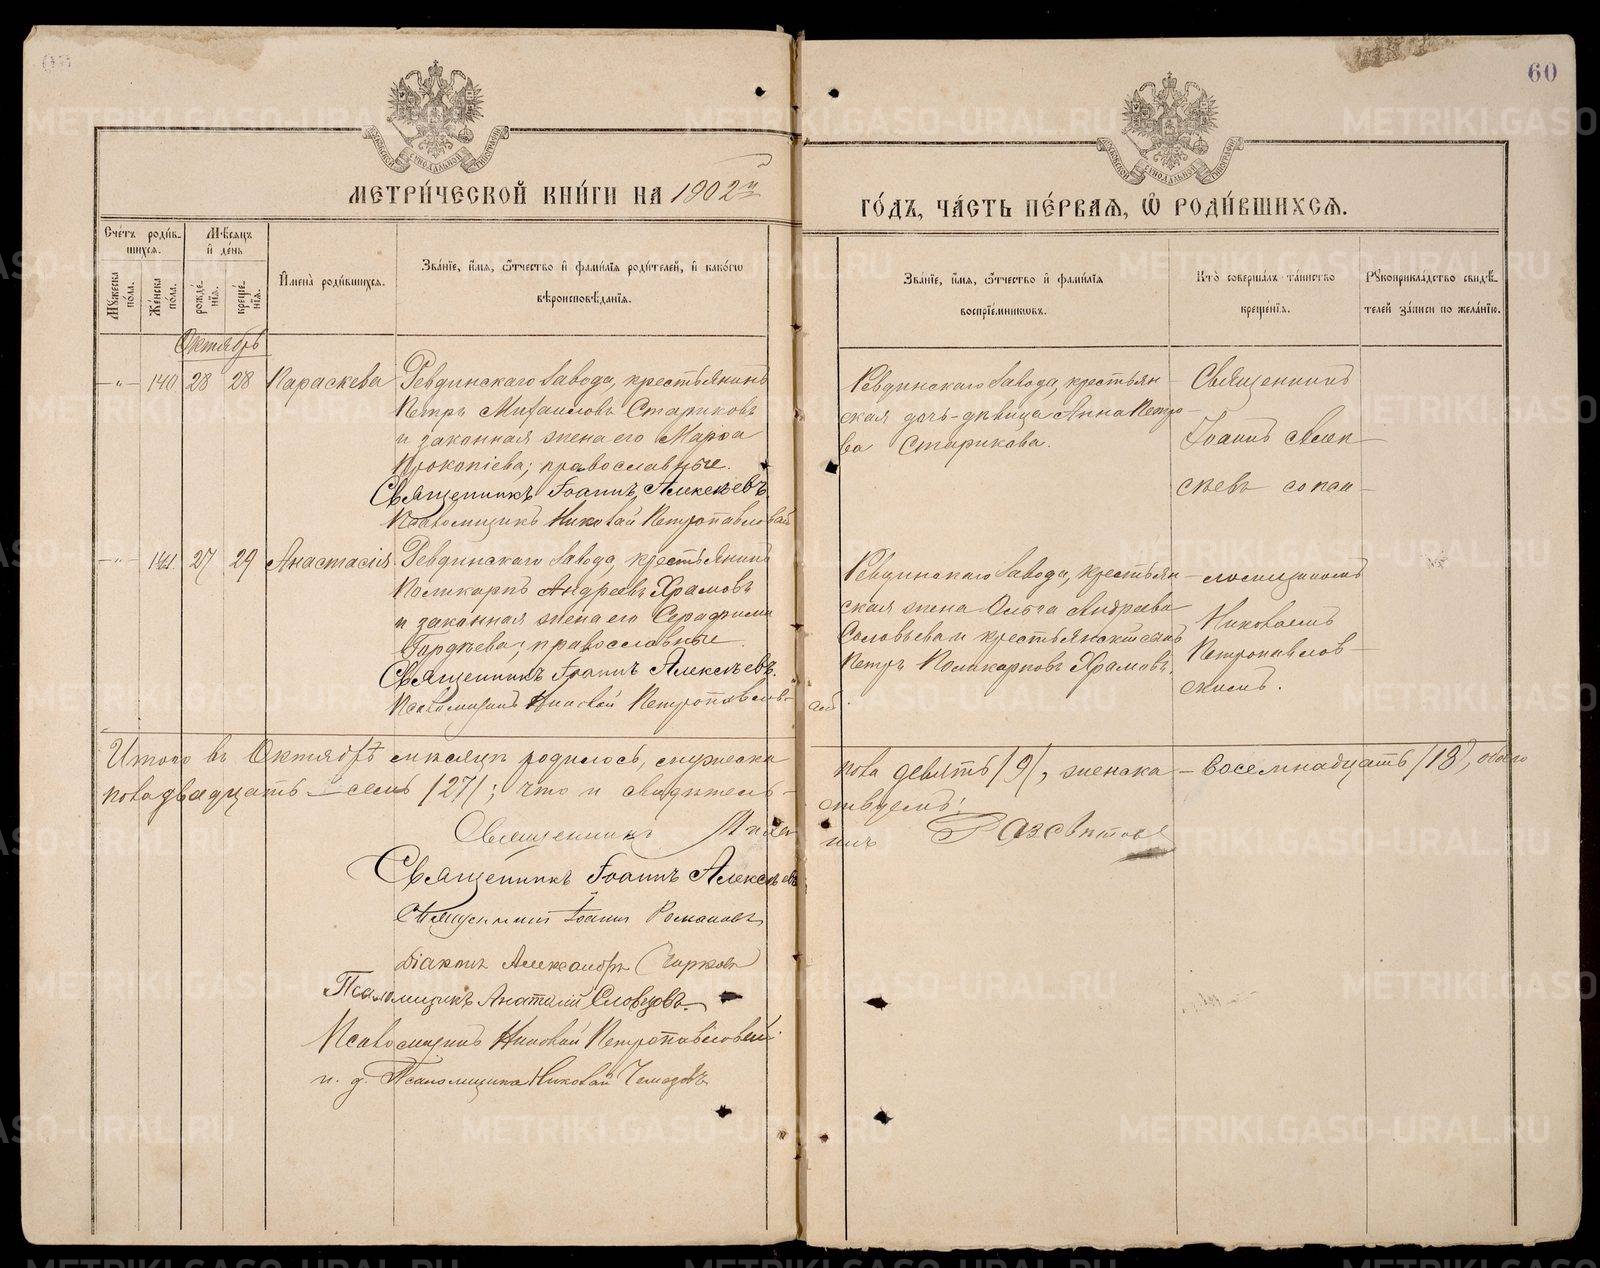 60
МЕТРИ́ЧЕСКОЙ КНИ́ГИ НА 1902й
ГО́ДЪ, ЧА́СТЬ ПЕ́РВАЯ, Ѡ РОДИ́ВШИХСЯ.
Сче́тъ роди́в-
шихся.
Мѣ́сяцъ
и҆ де́нь
Му́жеска
пола.
Же́нска
пола.
рожде́-
нїя.
креще́-
нїя.
И҆мена̀ роди́вшихся.
Зва́нїе, и҆́мя, ѻ҆́тчество и҆ фами́лїя роди́телей, и҆ како́гѡ
вѣроисповѣ́данїя.
Зва́нїе, и҆́мя, ѻ҆́тчество и҆ фами́лїя
воспрїе́мникѡвъ.
Кто̀ соверша́лъ та́инство
креще́нїя.
Рукоприкла́дство свидѣ́-
телей за́писи по жела́нїю.
Октябрь
— „ — 140 28 28 Параскева
Ревдинскаго Завода, крестьянинъ
Петръ Михаиловъ Стариковъ
и законная жена его Марѳа
Прокопіева; православные.
Священникъ Іоаннъ Алексѣевъ.
Псаломщикъ Николай Петропавловскій
Ревдинскаго Завода, крестьян-
ская дочь-дѣвица Анна Петро-
ва Старикова.
Священникъ
Іоаннъ Алек-
сѣевъ со пса-
— „ — 141 27 29 Анастасія
Ревдинскаго Завода, крестьянинъ
Поликарпъ Андреевъ Храмовъ
и законная жена его Серафима
Гордѣева; православные.
Священникъ Іоаннъ Алексѣевъ.
Псаломщикъ Николай Петропавлов-
скій.
Ревдинскаго Завода, крестьян-
ская жена Ольга Андреева
Соловьева и крестьянскій сынъ
Петръ Поликарповъ Храмовъ.
ломщикомъ
Николаемъ
Петропавлов-
скимъ.
Итого въ Октябрѣ мѣсяцѣ родилось, мужеска
пола девять /9/, женска — восемнадцать /18/, обоего
пола двадцать — семь /27/; что и свидѣтель-
ствуемъ:
Священникъ
Священникъ Іоаннъ Алексѣевъ
Священникъ Іоаннъ Романовъ
Діаконъ Александръ
Псаломщикъ Анатолій Словцовъ.
Псаломщикъ Николай Петропавловскій
и. д. Псаломщика Николай
METRIKI.GASO-URAL.RU